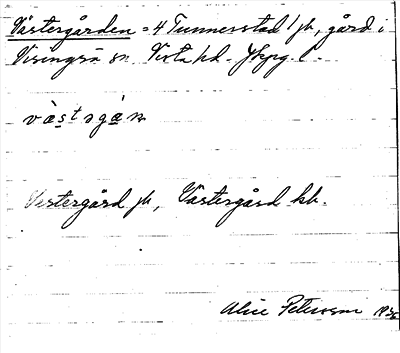 Västergården = 4 Tunnerstad 1 jb, gård i
Visingsö sn Vista hd. Jkpg. l.
Vestergård jb, Västergård kb.
Alice Petersson 1936